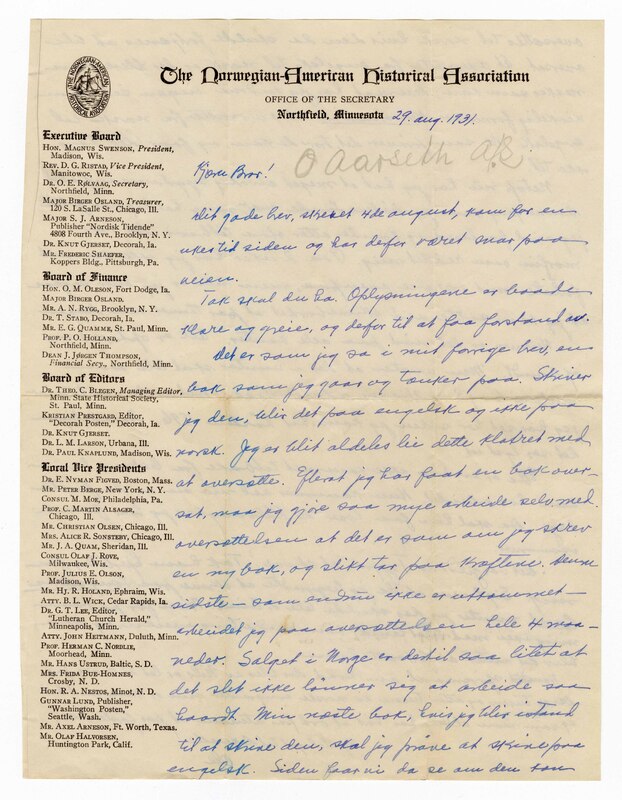 THE NORWEGIAN-AMERICAN HISTORICAL ASSOCIATION
The Norwegian-American Historical Association
OFFICE OF THE SECRETARY
Northfield, Minnesota
29. aug. 1931.
O Aarseth A/S
Executive Board
HON. MAGNUS SWENSON, President,
Madison, Wis.
REV. D. G. RISTAD, Vice President,
Manitowoc, Wis.
DR. O. E. RØLVAAG, Secretary,
Northfield, Minn.
MAJOR BIRGER OSLAND, Treasurer,
120 S. LaSalle St., Chicago, Ill.
MAJOR S. J. ARNESON,
Publisher "Nordisk Tidende"
4808 Fourth Ave., Brooklyn, N. Y.
DR. KNUT GJERSET, Decorah, Ia.
MR. FREDERIC SHAEFER,
Koppers Bldg., Pittsburgh, Pa.
Board of Finance
HON. O. M. OLESON, Fort Dodge, Ia.
MAJOR BIRGER OSLAND.
MR. A. N. RYGG, Brooklyn, N. Y.
DR. T. STABO, Decorah, Ia.
MR. E. G. QUAMME, St. Paul, Minn.
PROF. P. O. HOLLAND,
Northfield, Minn.
DEAN J. JØRGEN THOMPSON,
Financial Secy., Northfield, Minn.
Board of Editors
DR. THEO. C. BLEGEN, Managing Editor,
Minn. State Historical Society,
St. Paul, Minn.
KRISTIAN PRESTGARD, Editor,
"Decorah Posten," Decorah, Ia.
DR. KNUT GJERSET.
DR. L. M. LARSON, Urbana, Ill.
DR. PAUL KNAPLUND, Madison, Wis.
Local Vice Presidents
DR. E. NYMAN FIGVED, Boston, Mass.
MR. PETER BERGE, New York, N. Y.
CONSUL M. MOE, Philadelphia, Pa.
PROF. C. MARTIN ALSAGER,
Chicago, Ill.
MR. CHRISTIAN OLSEN, Chicago, Ill.
MRS. ALICE R. SONSTEBY, Chicago, Ill.
MR. J. A. QUAM, Sheridan, Ill.
CONSUL OLAF J. ROVE,
Milwaukee, Wis.
PROF. JULIUS E. OLSON,
Madison, Wis.
MR. HJ. R. HOLAND, Ephraim, Wis.
ATTY. B. L. WICK, Cedar Rapids, Ia.
DR. G. T. LEE, Editor,
"Lutheran Church Herald,"
Minneapolis, Minn.
ATTY. JOHN HEITMANN, Duluth, Minn.
PROF. HERMAN C. NORDLIE,
Moorhead, Minn.
MR. HANS USTRUD, Baltic, S. D.
MRS. FRIDA BUE-HOMNES,
Crosby, N. D.
HON. R. A. NESTOS, Minot, N. D.
GUNNAR LUND, Publisher,
"Washington Posten,"
Seattle, Wash.
MR. AXEL ARNESON, Ft. Worth, Texas.
MR. OLAF HALVORSEN,
Huntington Park, Calif.
Kjære Bror!
Dit gode brev, skrevet 4de august, kom for en
ukes tid siden og har defor været snar paa
veien.
Tak skal du ha. Oplysningene er baade
klare og greie, og defor til at faa forstand av.
Det er som jeg sa i mit forrige brev, en
bok som jeg gaar og tænker paa. Skriver
jeg den, blir det paa engelsk og ikke paa
norsk. Jeg er blit aldeles lei dette klotret med
at oversætte. Efterat jeg har faat en bok over-
sat, maa jeg gjøre saa mye arbeide selv med
oversættelsen at det er som om jeg skrev
en ny bok, og slikt tar paa kræftene. Denne
sidste – som endnu ikke er utkommet –
arbeidet jeg paa oversættelsen hele 4 maa-
neder. Salget i Norge er dertil saa litet at
det slet ikke lønner sig at arbeide saa
haardt. Min næste bok, hvis jeg blir istand
til at skrive den, skal jeg prøve at skrive paa
engelsk. Siden faar vi da se om den kan